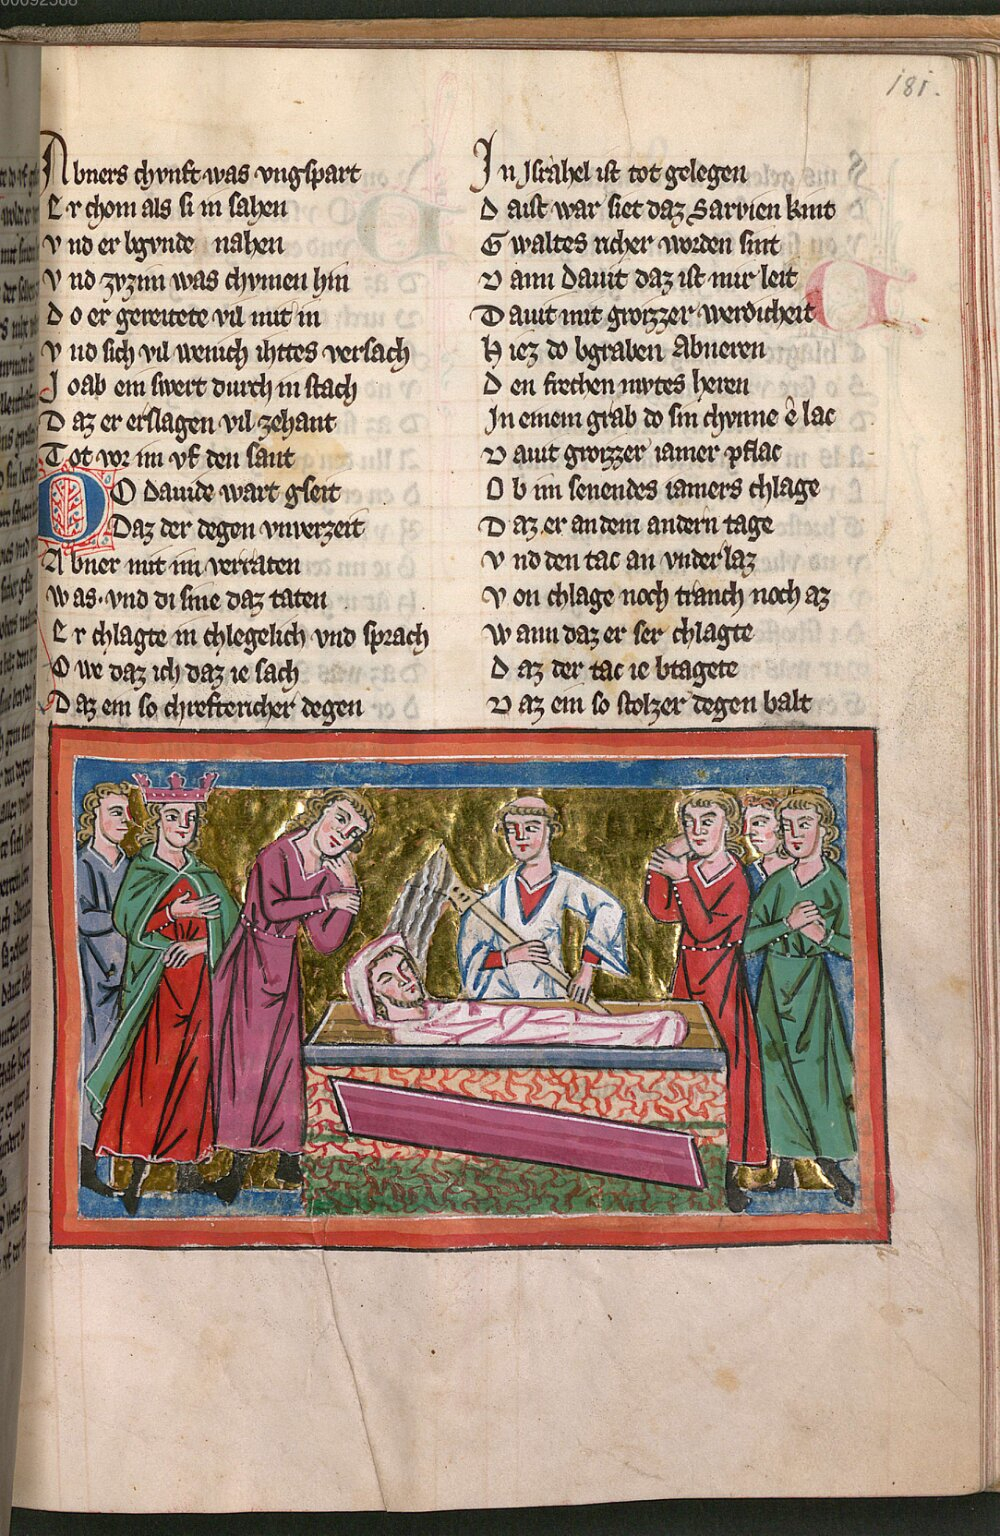 00092588
181.
Abners chvnft was vngspart
Er chom als si in sahen
Vnd er bgvnde nahen
Vnd zvzim was chvmen hin
Do er gereitete vil mit in
Vnd sich vil wenich ihttes versach
Joab ein swert durch in stach
Daz er erslagen vil zehant
Tot vor im vf den sant
DO dauide wart gseit
Daz der degen vnverzeit
Abner mit im verraten
Was. vnd di sine daz taten
Er chlagte in chlegelich vnd sprach
Owe daz ich daz ie sach
Daz ein so chreftericher degen
In Jsrahel ist tot gelegen
Daist war siet daz Sarvien kint
Gwaltes richer worden sint
Dann Dauit daz ist mir leit
Dauit mit grozzer werdicheit
Hiez do bgraben Abneren
Den frechen mvtes heren
In einem grab do sin chvnne è lac
Dauit grozzer iamer pflac
Ob im senendes iamers chlage
Daz er an dem andern tage
Vnd den tac an vnderlaz
Von chlage noch tranch noch az
Wann daz er ser chlagte
Daz der tac ie btagete
Daz ein so stolzer degen balt